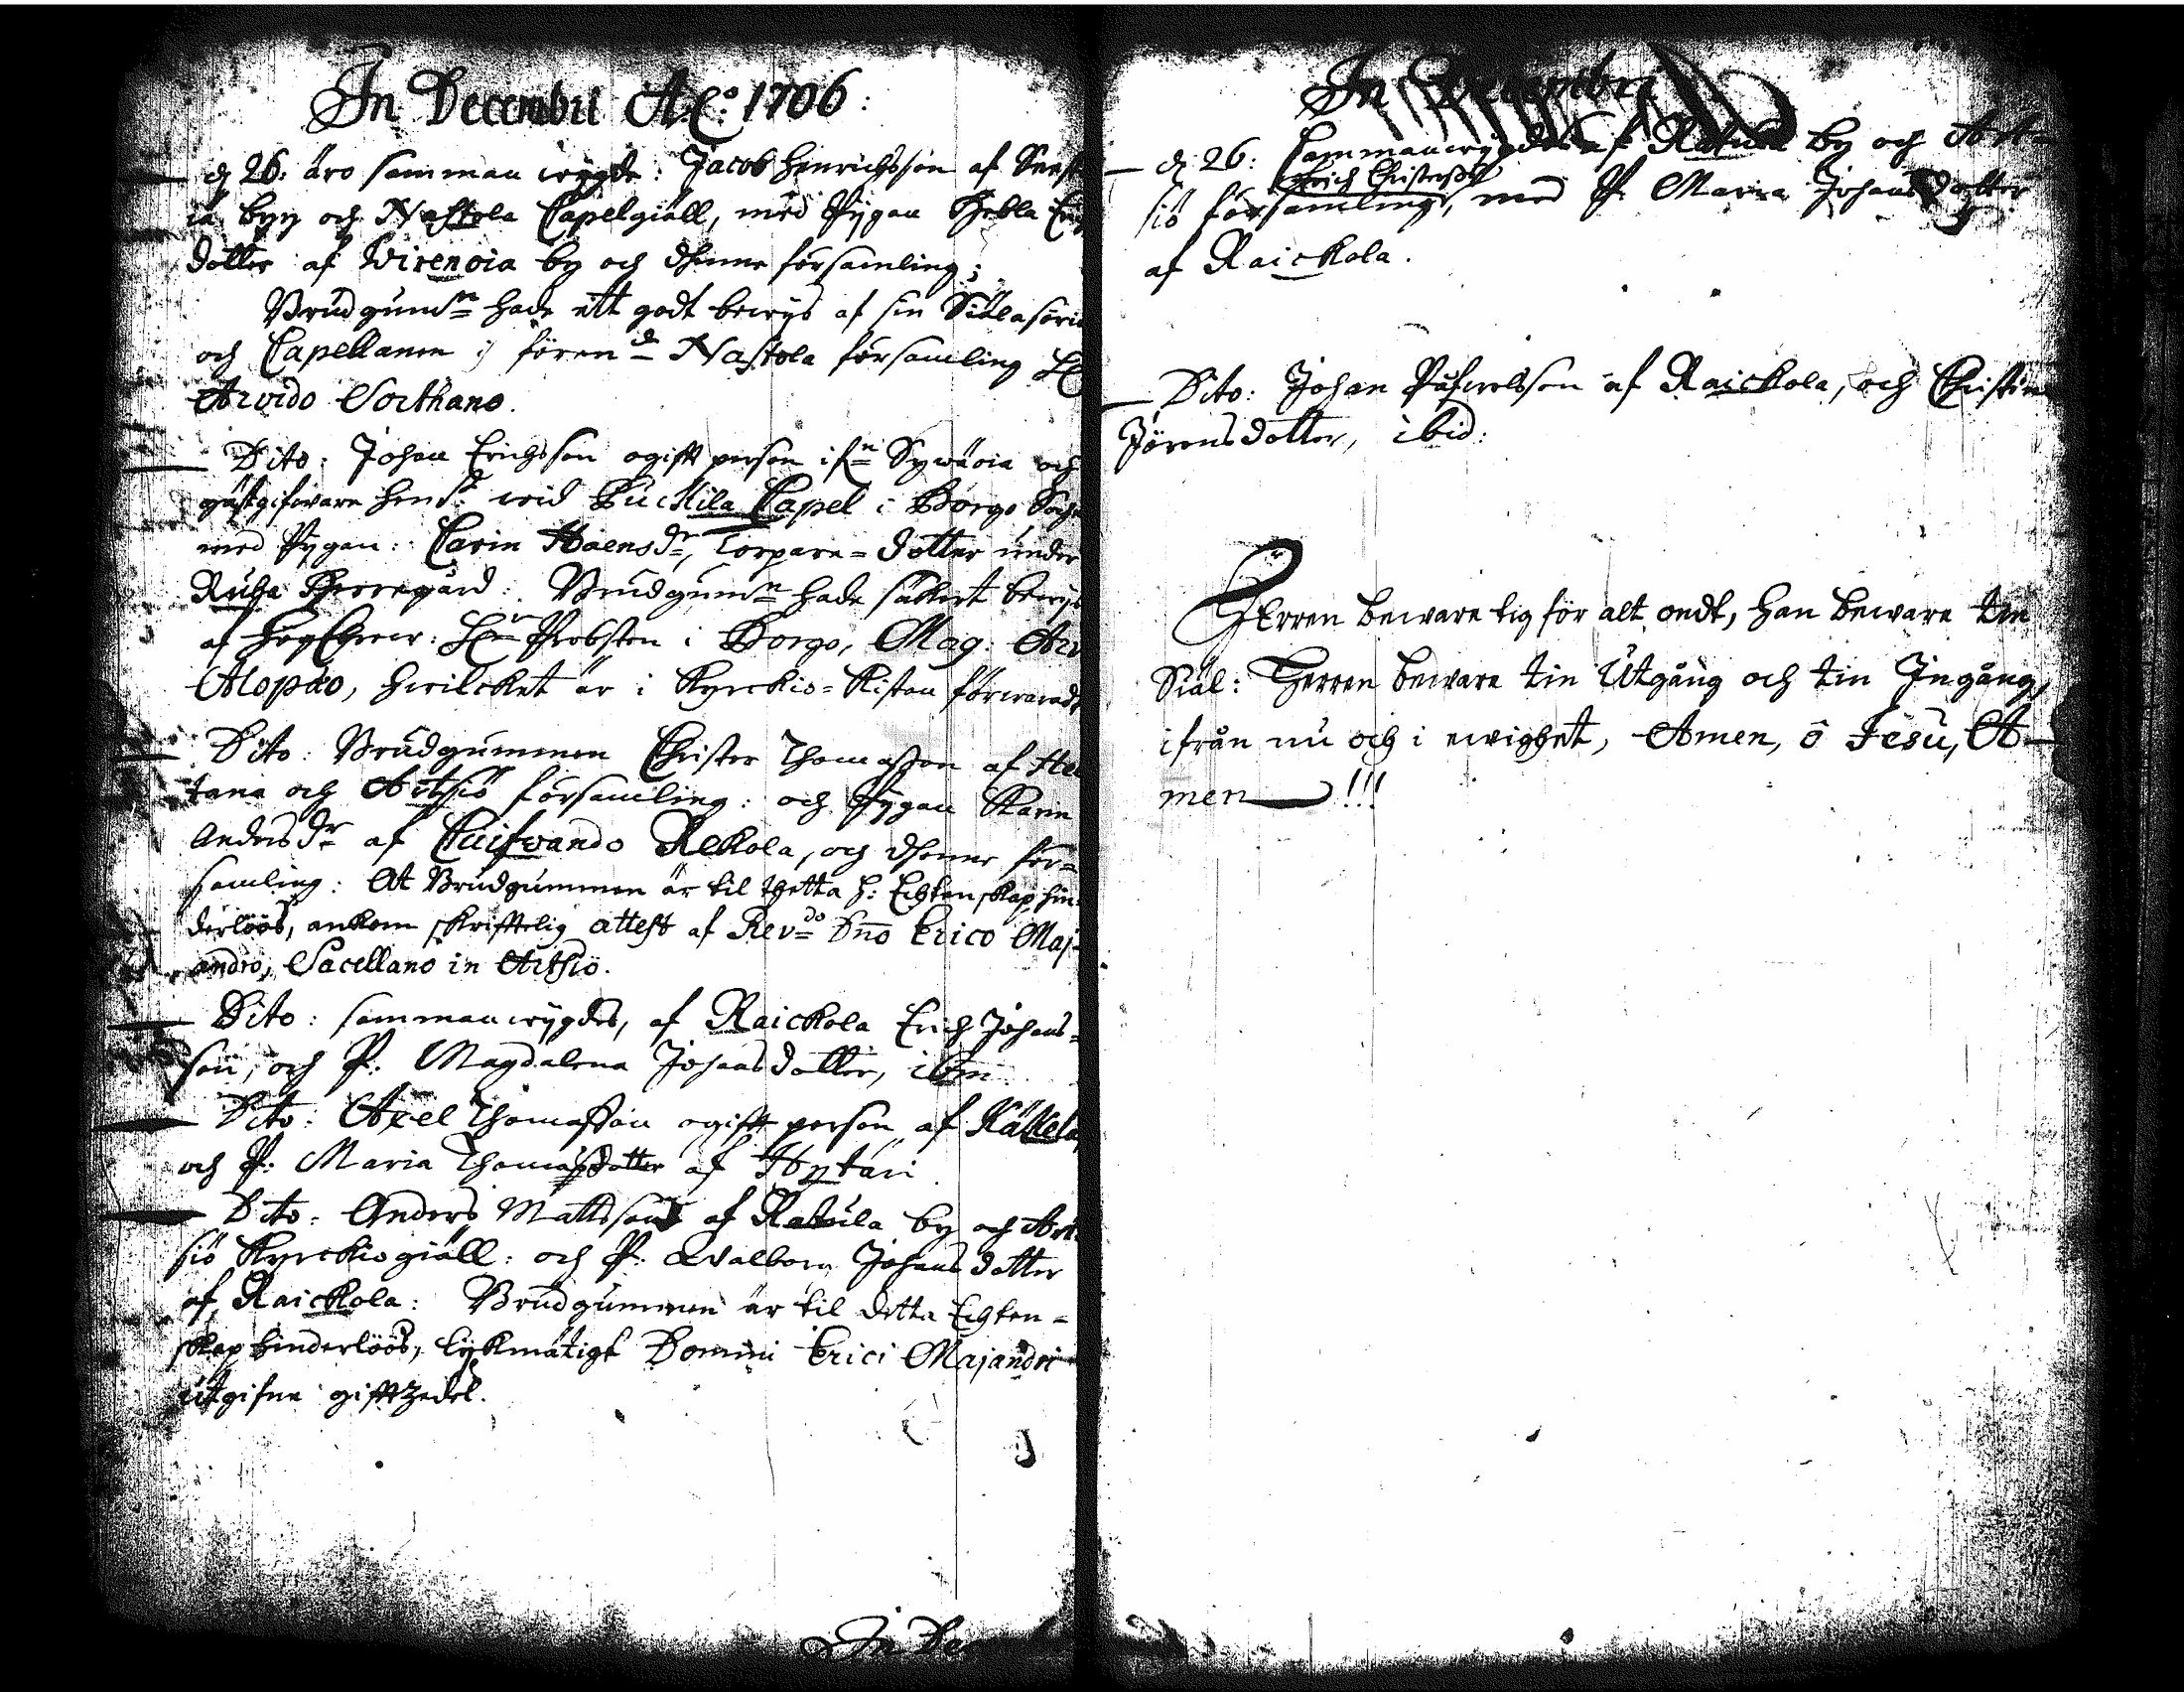 In Decembri A.C:º 1706:
d 26: äro samman wygde: Jacob Henrichsson af
by och Nastola Capelgiäll, med Pygan Hebla
dotter af Wirenoia by och thenne församling;
Brudgumen hade ett godt bewys af sin
och Capellanen i förend Nastola församling
Arvido Northano.
Dito: Johan Erichsson ogifft person ifn Sywäoia och
gästgifware wid Puckila Capel i Borgo
med Pygan: Carin Torpare-dotter under
Herregård: Brudgumn hade säkert bewys
af Probsten i Borgo, Mag:
Alopæo, hwilcket är i Kyrckio-Kistan förwarad
Dito: Brudgummen Christer Thomasson af
tana och Artsiö församling: och Pygan Karin
Anders dr af Cuifwando Rekola, och thenne för=
samling: At Brudgummen är til thetta h: Echtenskap hin-
derlöös, ankom skrifftelig attest af Revdo Dno Erico Maj-
andro, Sacellano in Artsiö.
Dito: sammanwygdes, af Raickola Erich Johans=
son, och P: Magdalena Johansdotter, ibm.
Dito: Axel Thomasson ogifft person af
och P: Maria Thomasdotter af Hytäri.
Dito: Anders Mattsson af Ratula by och Art-
siö Kyrckiogiäll: och P: Walborg Johansdotter
af Raickola: Brudgummen är til detta Echten=
skap hinderlöös, lykmätigt Domini Erici Majandri
utgifne gifftzedel.
In De
In Decembri
d 26: Sammanwygdes af Ratula by och Art=
Erich Christerss:
siö församling, med P: Maria Johansdotter
af Raickola.
Dito: Johan Påfwelsson af Raickola, och Christin
Jörensdotter, ibid:
HErren beware tig för alt ondt, han beware tin
Siäl: Herren beware tin Utgång och tin Ingång,
ifrån nu och i ewighet, Amen, ô Jesu, A-
men !!!